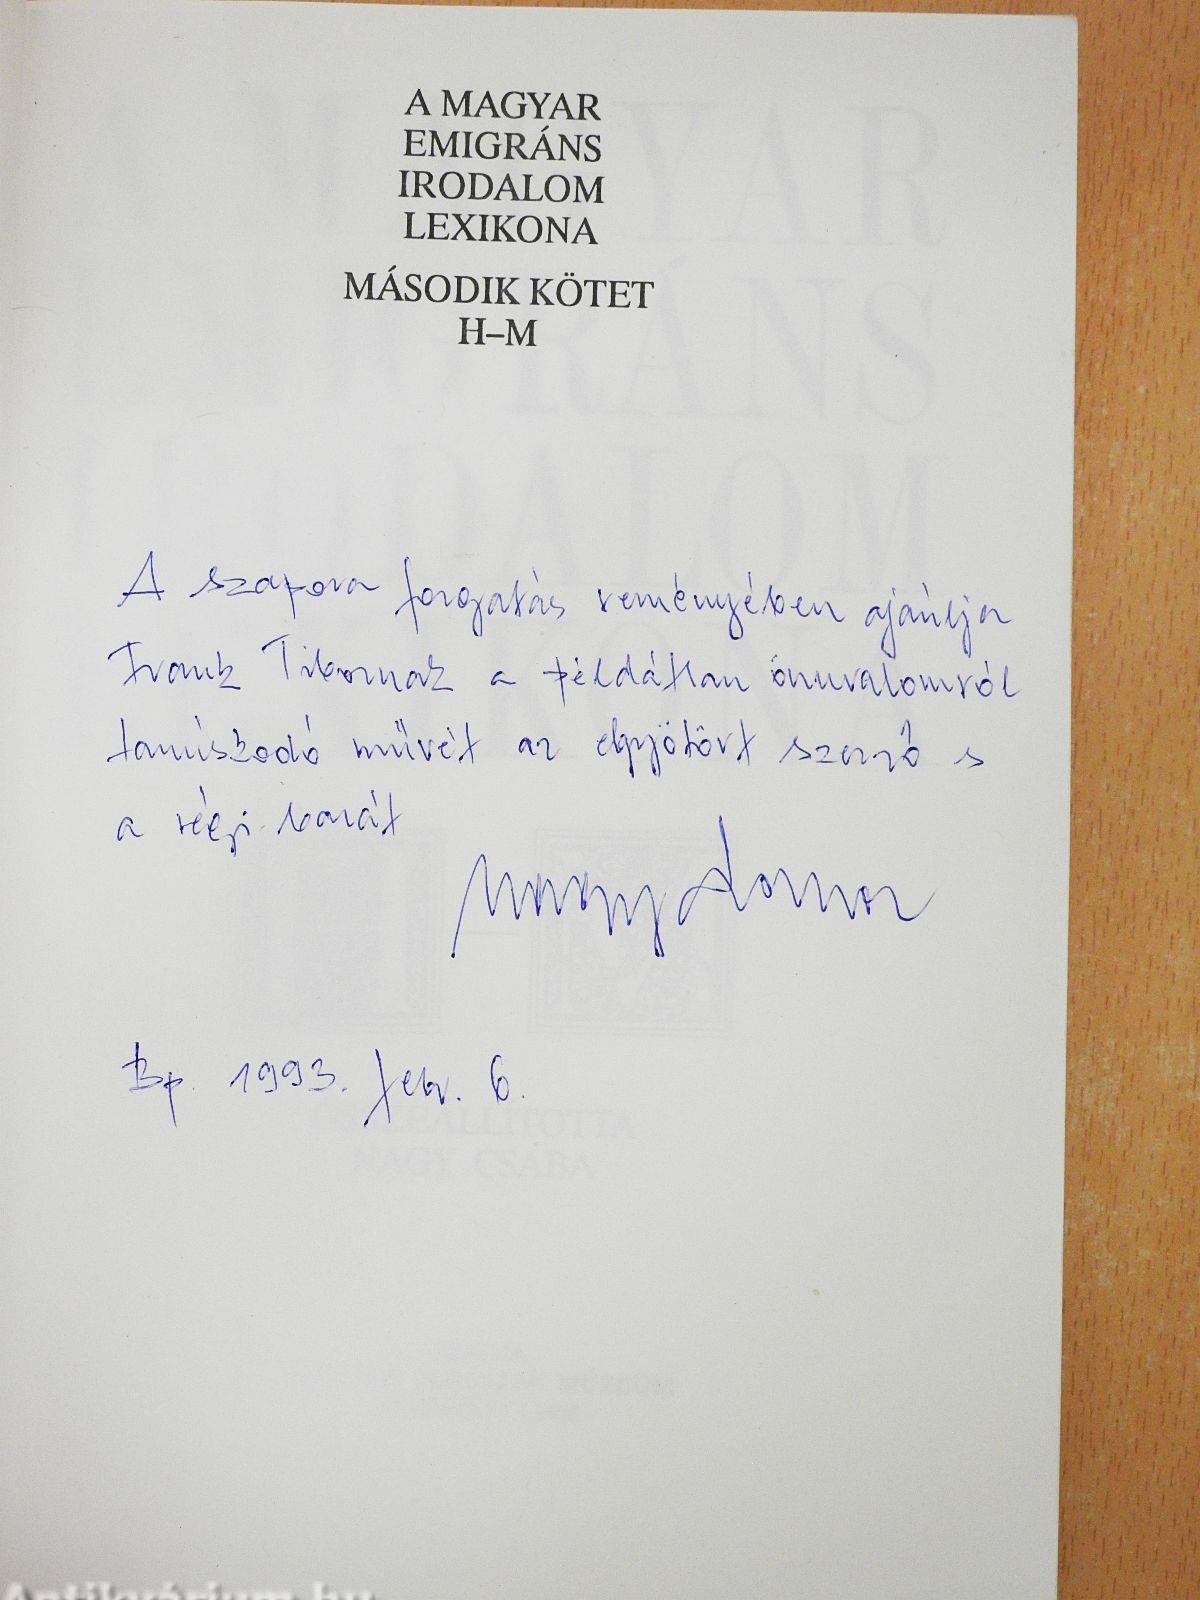 A MAGYAR
EMIGRÁNS
IRODALOM
LEXIKONA
MÁSODIK KÖTET
H–M
A szapora forgatás reményében ajánlja
Frank Tibornak a példátlan önuralomról
tanúskodó művét az elgyötört szerző s
a régi barát
Bp. 1993. febr. 6.
ÖSSZEÁLLÍTOTTA
NAGY CSABA
Antikvárium.hu